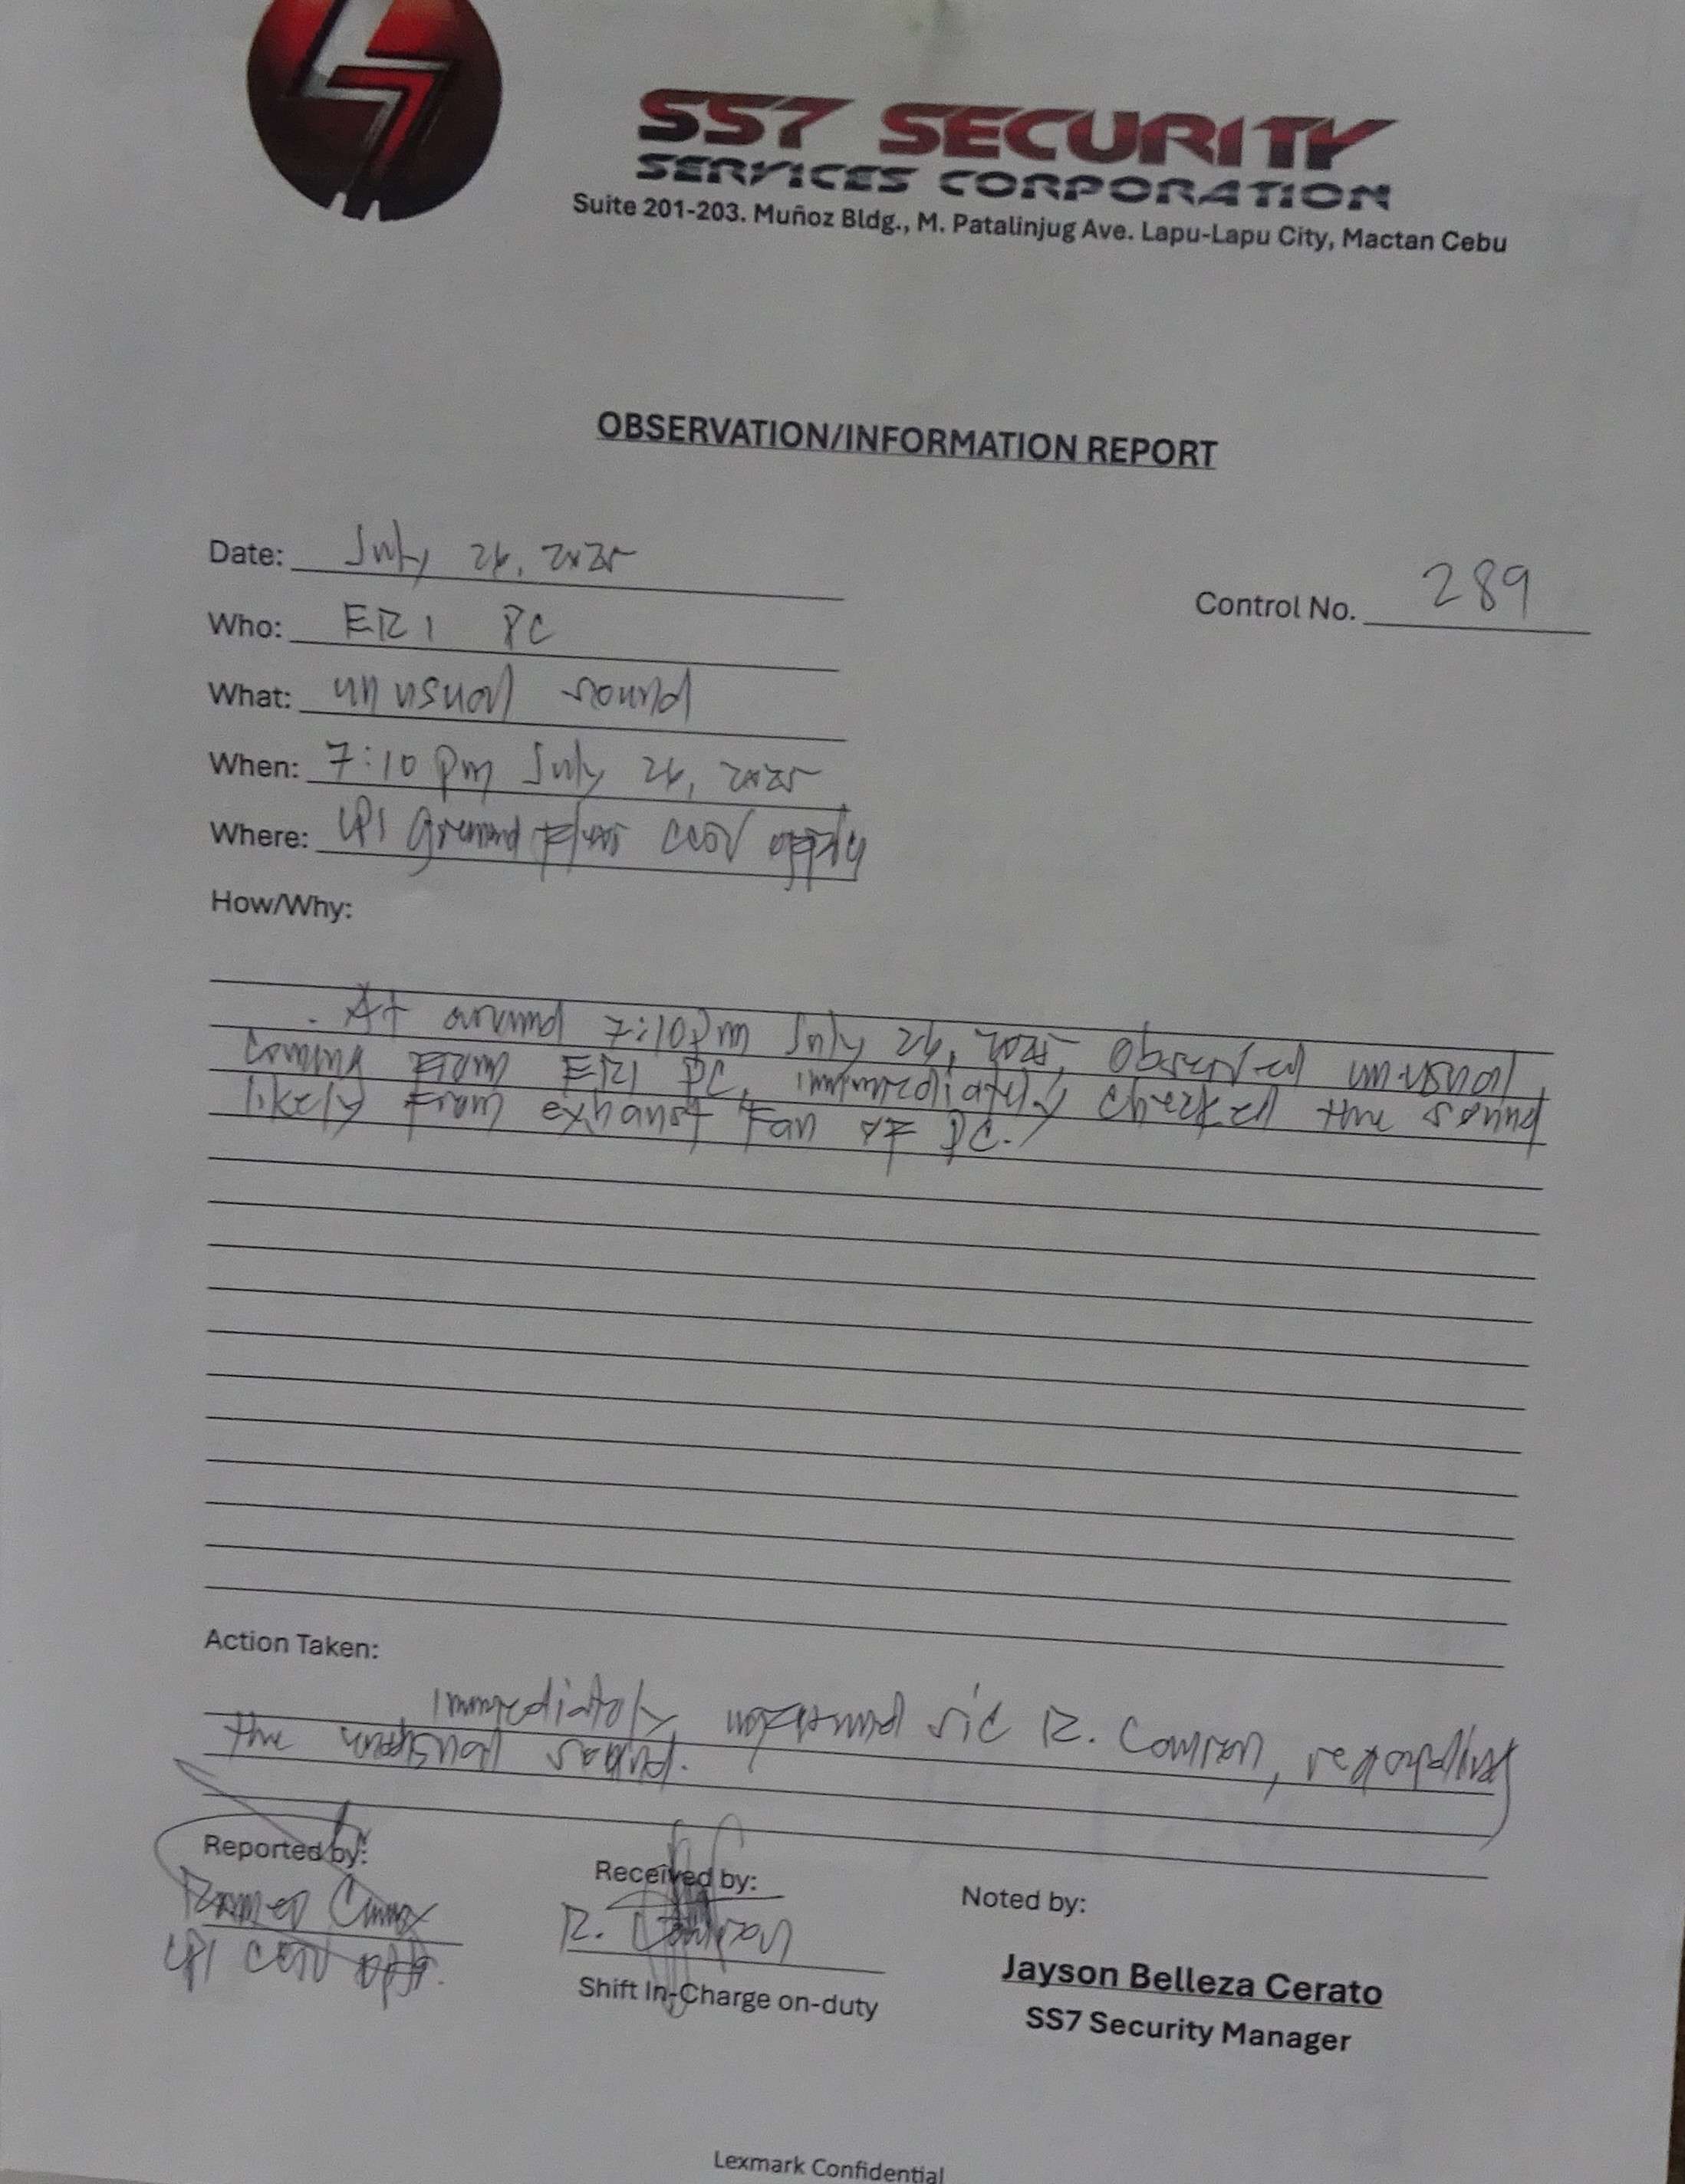 SS7 SECURITY
SERVICES CORPORATION
Suite 201-203. Muñoz Bldg., M. Patalinjug Ave. Lapu-Lapu City, Mactan Cebu
OBSERVATION/INFORMATION REPORT
Date: July 26, 2025
Control No. 289
Who: ER1 PC
What: unusual sound
When: 7:10 pm July 26, 2025
Where: LPI Ground floor CCTV
How/Why:
At around 7:10 pm July 26, 2025, observed unusual,
coming from ER1 PC, immediately checked the sound
likely from exhaust fan of PC.
Action Taken:
Immediately informed sic R. , regarding
the unusual sound.
Reported by:
LPI CCTV
Received by:
R.
Shift In-Charge on-duty
Noted by:
Jayson Belleza Cerato
SS7 Security Manager
Lexmark Confidential